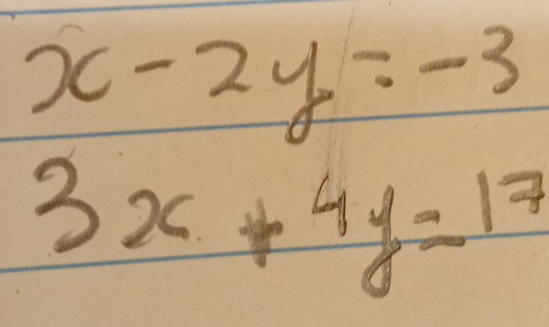 x - 2y = -3
3x + 4y = 17